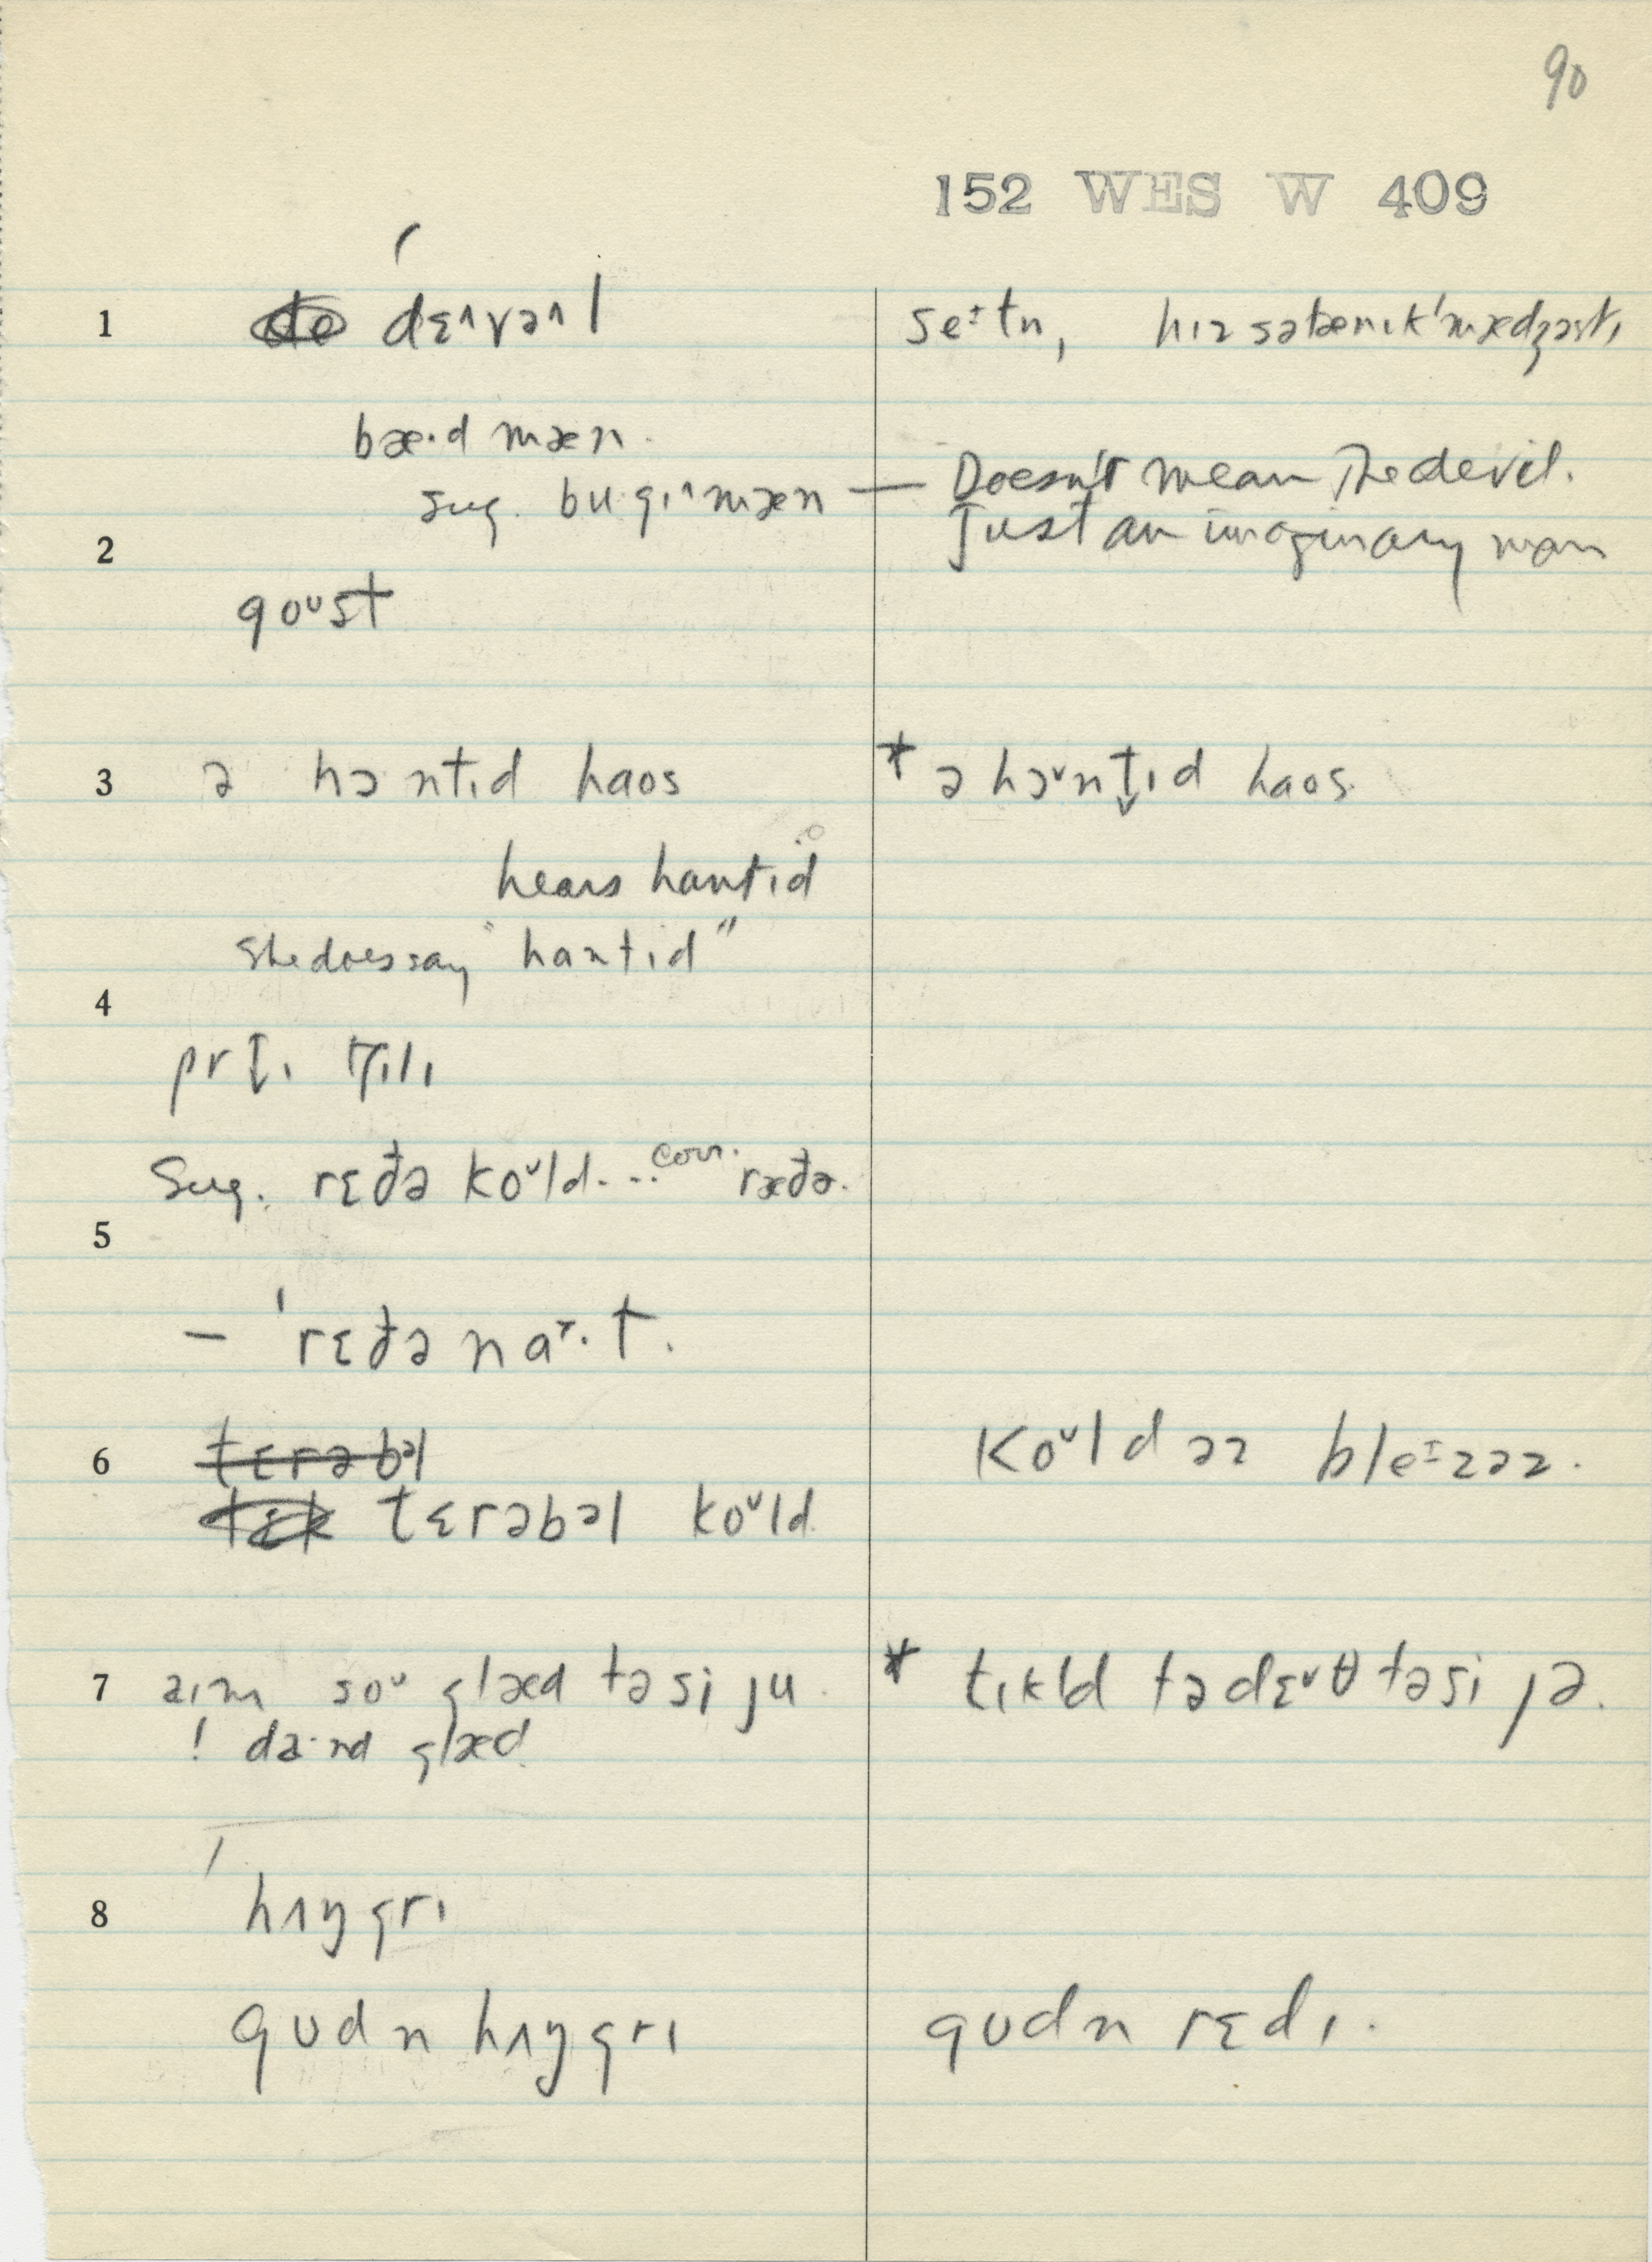 90
152 WES W 409
1 dɛ^və^l
se⁠ɪtn, hɪz sətænɪk ˈmædʒəstɪ
bæ·d mæn.
sug. bu·gɪ^mæn — Doesn't mean The devil.
2 Just an imaginary man
goᴜst
3 ə hɔntɪd haos * ə hɔ˅nt̬ɪd haos
hears hantɪd
she does say "hantɪd"
4
prɪ
Sug. rɛðə ko˅ld... corr. ræðə.
5
— ˈrɛðə na·t.
6 tɛrəbl ko˅ld əz ble⁠ɪzəz.
tɛrəbəl ko˅ld
7 aɪm soᴜ glæd tə si ju * tɪkld tə dɛ˅θ tə si jə.
! da·nd glæd
8 hʌŋgrɪ
gᴜdn hʌŋgrɪ gᴜdn rɛdɪ.